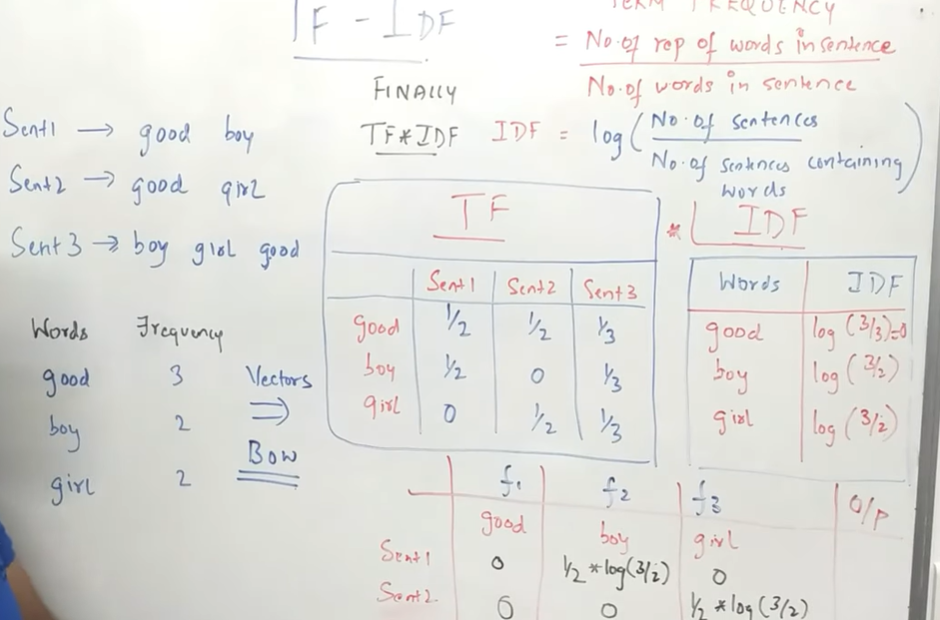 TF - IDF
TERM FREQUENCY
= No. of rep of words in sentence
No. of words in sentence
FINALLY
TF*IDF
IDF = log ( No. of sentences
No. of sentences containing words )
Sent1 → good boy
Sent2 → good girl
Sent3 → boy girl good
Words Frequency
good 3
boy 2
girl 2
Vectors
⇒
BOW
TF
Sent1 Sent2 Sent3
good 1/2 1/2 1/3
boy 1/2 0 1/3
girl 0 1/2 1/3
* IDF
Words IDF
good log (3/3)=0
boy log (3/2)
girl log (3/2)
f1 f2 f3 O/P
good boy girl
Sent1 0 1/2 * log(3/2) 0
Sent2 0 0 1/2 * log(3/2)